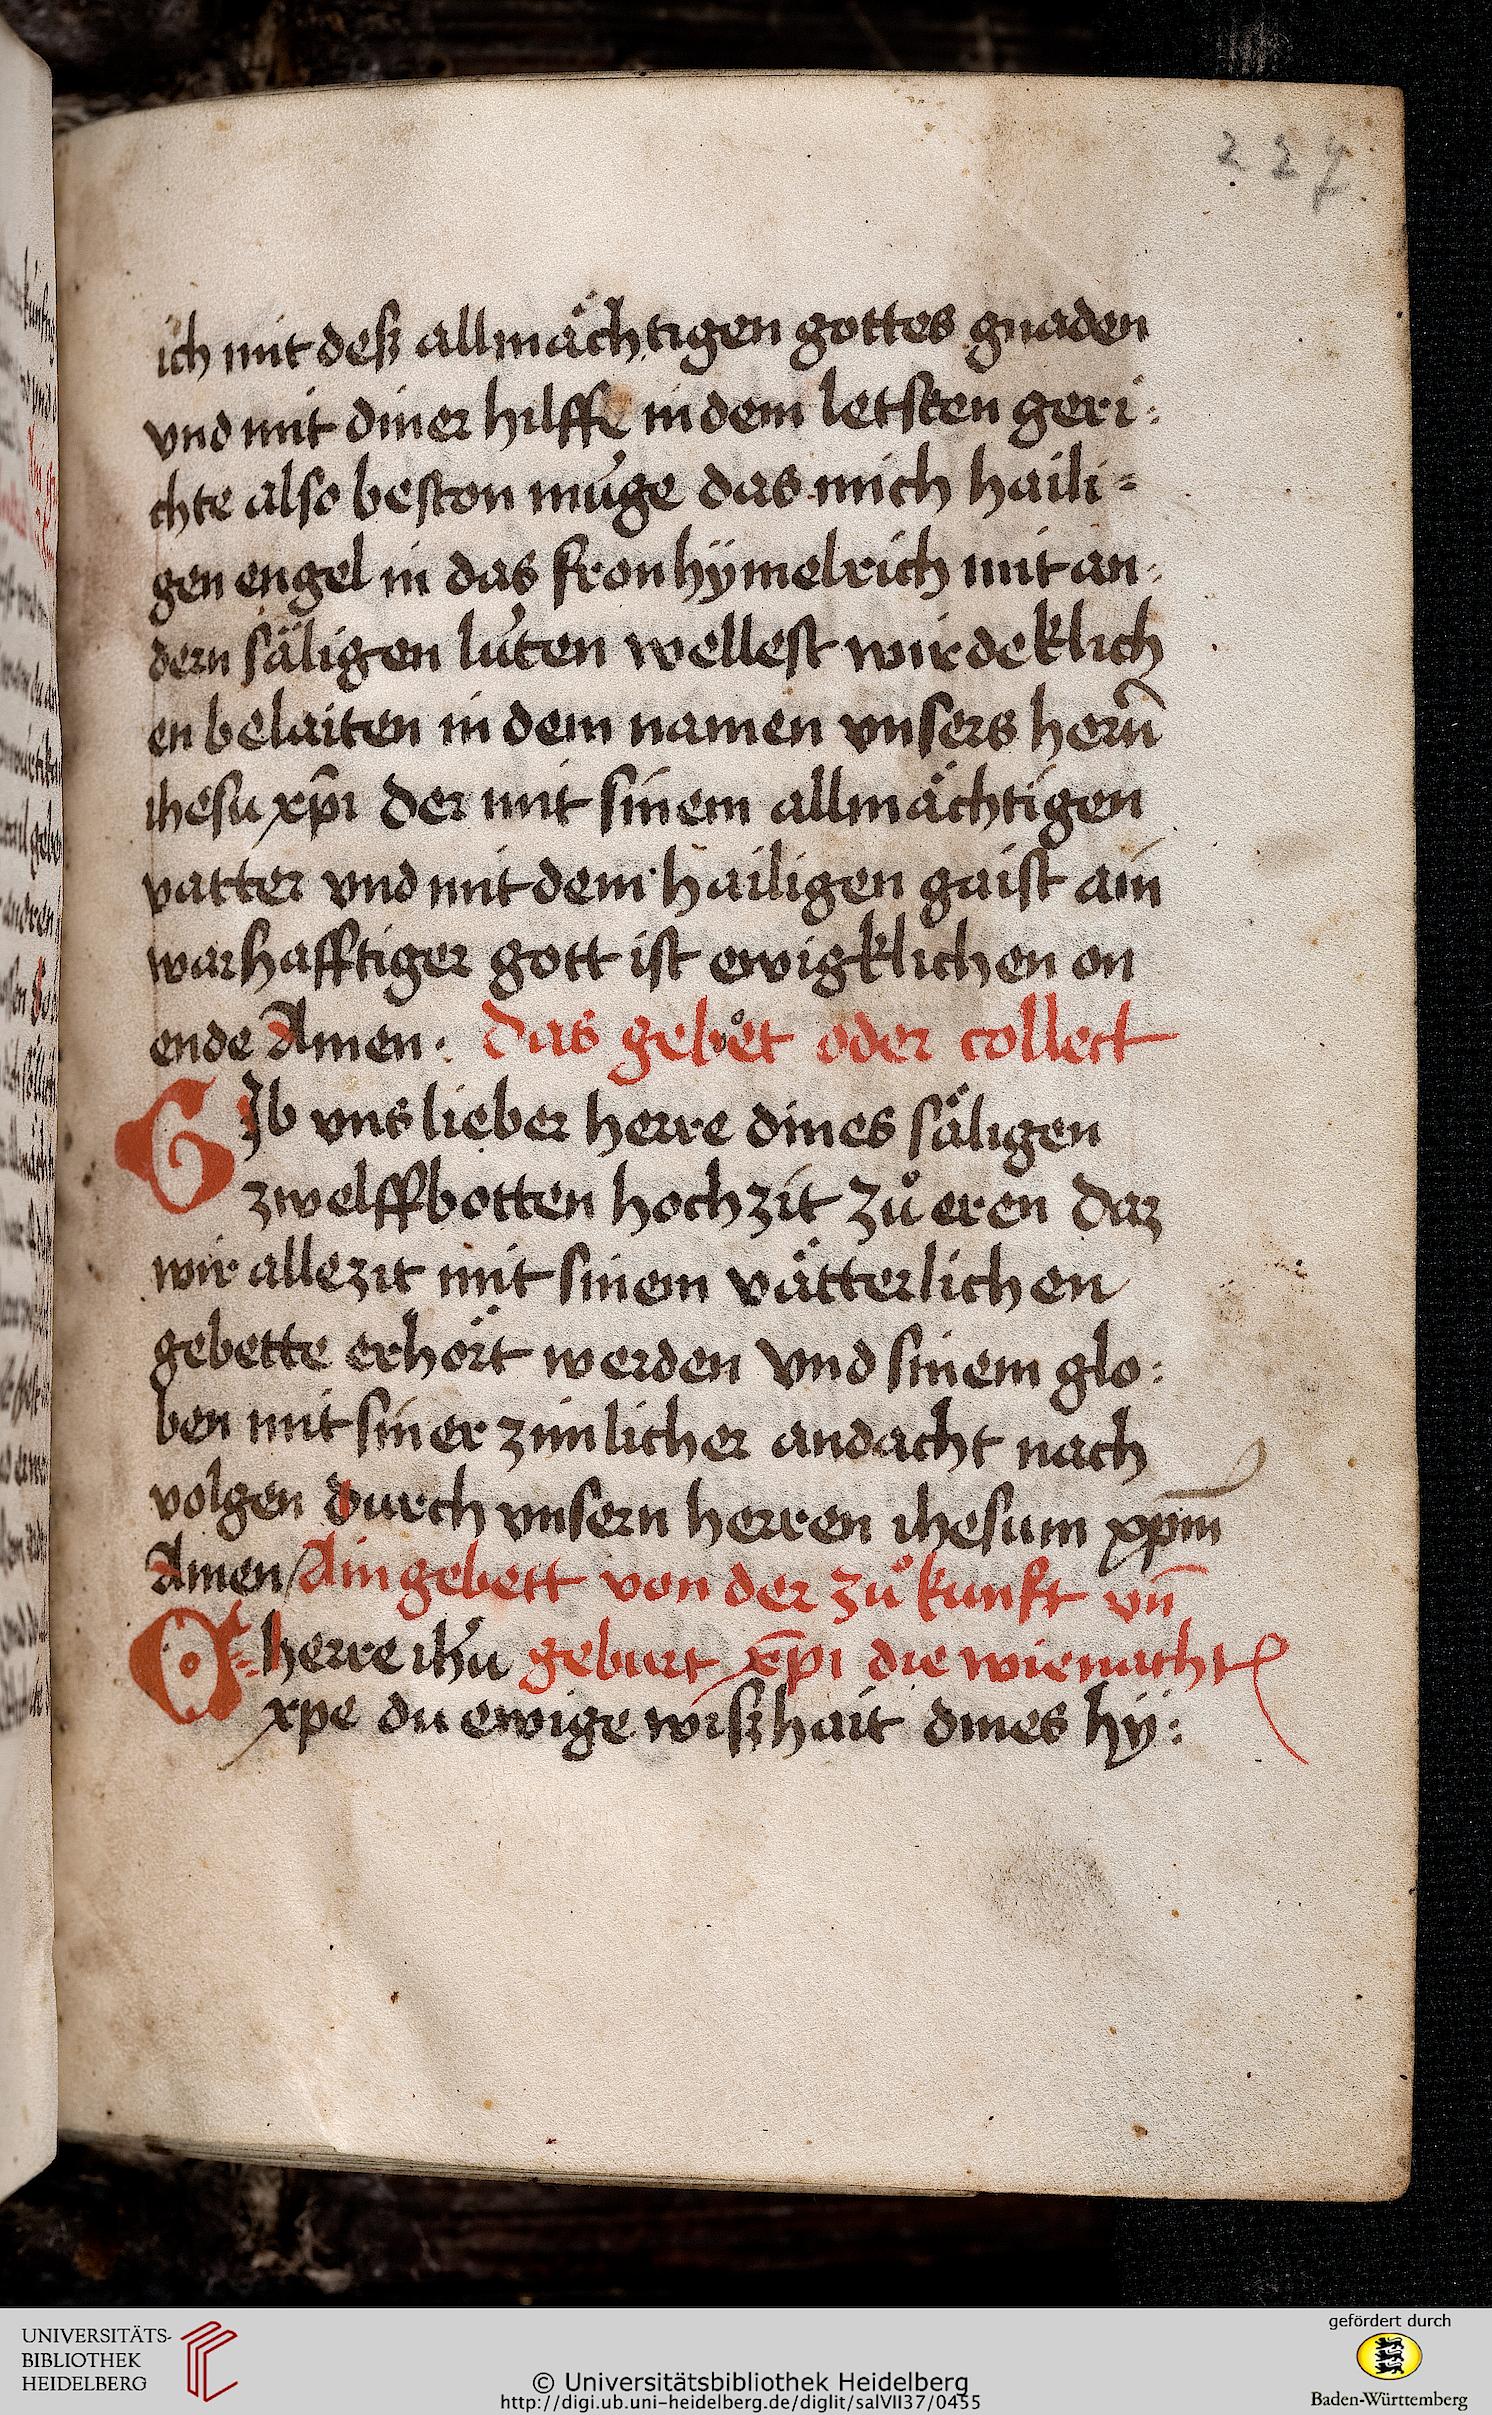 227
ich mit desz allmächtigen gottes gnaden
vnd mit diner hilffe in dem letsten geri:
chte also beston mu̍ge das mich haili=
gen engel in das fron hÿmelrich mit an:
dern säligen lu̍ten wellest wirdeklich
en belaiten in dem namen vnsers herꝛn̄
ihesu xp̄i der mit sinem allmächtigen
vatter vnd mit dem hailigen gaist ain
warhafftiger gott ist ewigklichen on
ende Amen · Das gebet oder collect
GIb vns lieber herre dines säligen
zwelffbotten hochzit zů eren daz
wir allezit mit sinem vätterlichen
gebette erhört werden vnd sinem glo:
ben mit siner zimlicher andacht nach
volgen durch vnsern herren ihesum xp̄m
Amen / Ain gebett von der zůkunft vn̄
O herre ihu̍ geburt xp̄i die wienacht
xpe du ewige wiszhait dines hÿ:
UNIVERSITÄTS-
BIBLIOTHEK
HEIDELBERG
© Universitätsbibliothek Heidelberg
http://digi.ub.uni-heidelberg.de/diglit/salVII37/0455
gefördert durch
Baden-Württemberg